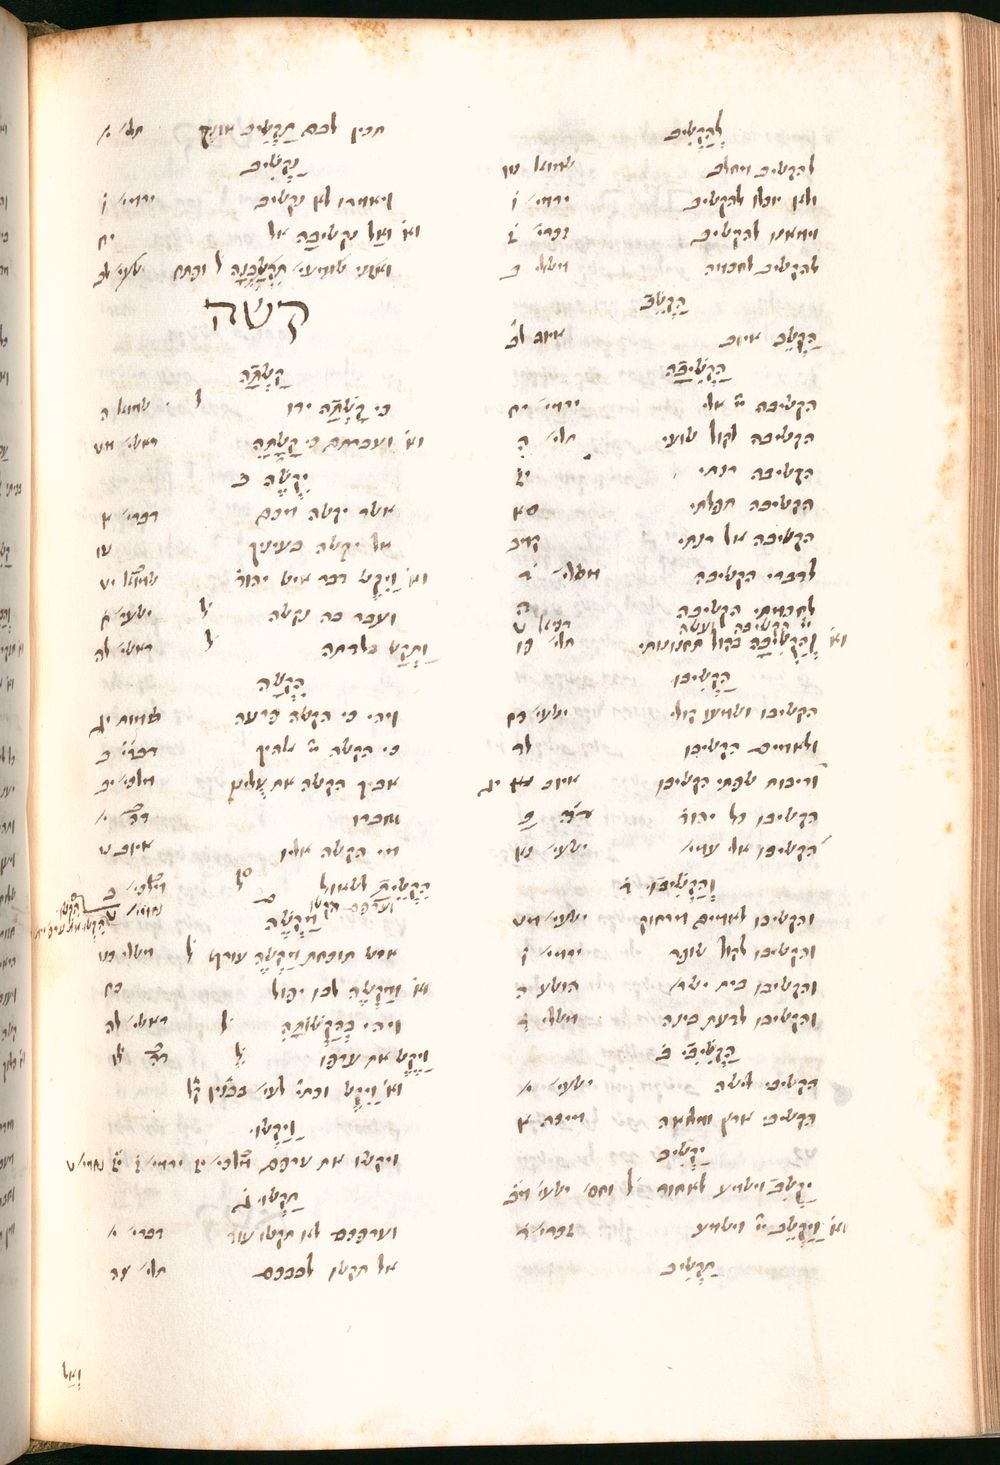 לְהַקְשִׁיב
להקשיב מחלב שמוא׳ טו
ולא יוכלו להקשיב ירמי׳ ו
וימאנו להקשיב זכרי׳ ז
להקשיב לחכמה משלי ב
הַקְשֵׁב
הַקְשֵׁב איוב איוב לג
הַקְשִׁיבָה
הקשיבה יי׳ אלי ירמי׳ יח
הקשיבה לקול שועי תלי׳ ה
הקשיבה רנתי יז
הקשיבה תפלתי סא
הקשיבה אל רנתי קמב
לדברי הקשיבה משלי׳ ד
לחכמתי הקשיבה ה
יי׳ הקשיבה ועשה דניאל ט
וא׳ וְהַקְשִׁיבָה בקול תחנונותי תלי׳ פו
הַקְשִׁיבוּ
הקשיבו ושמעו קולי ישעי׳ כח
ולאומים הקשיבו לד
וריבות שפתי הקשיבו איוב יג
הקשיבו כל יהוד׳ ב
הקשיבו אלי עמי׳ ישעי׳ נא
וְהַקְשִׁיבוּ ד
והקשיבו לאומים מרחוק ישעי׳ מט
והקשיבו לקול שופר ירמי׳ ו
והקשיבו בית ישר׳ הושע ה
והקשיבו לדעת בינה משלי ד
הַקְשִׁיבִי ב
הקשיבי לישה ישעי׳ י
הקשיבי ארץ ומלאה מיכה א
יַקְשִׁיב
יַקְשִׁב וישמע לאחור ל׳ וחס׳ ישעי׳ מב
וא׳ וַיַּקְשֵׁב יי׳ וישמע
תַקְשִׁיב
תכין לבם תַקְשִׁיב אזנך תלי׳ י
נַקְשִׁיב
ויאמרו לא נקשיב ירמי׳ ו
וא׳ וְאַל נקשיבה אל יח
ואזני שומעי׳ תִּקְשַׁבְנָה ל׳ ופתח ישעי׳ לב
קשה
קָשְׁתָה
כי קָשְׁתָה ידו ל׳ שמוא׳ ה
וא׳ ועברתם כי קָשָׁתָה ראשי׳ מט
יִקְשֶׁה ב
אשר יקשה מכם דברי׳ א
אל יקשה בעיניך טו
וא׳ וַיִּקֶשׁ דבר איש יהוד׳ יט
ועבר בה נקשה ל׳ ישעי׳ ח
וַתְּקַשׁ בלדתה ל׳ ראשי׳ לה
הִקְשָׁה
ויהי כי הקשה פרעה שמות יג
כי הקשה יי׳ אלהיך דברי׳ ב
אביך הקשה את עלינו מלכי׳ יב
וחברו י
מי הקשה אליו איוב ט
הִקְשִׁיתָ לשאול ל׳ מלכי׳ ב
מַקְשֶׁה
איש תוכחת מַקְשֶׁה עורף ל׳ משלי כט
וא׳ וּמַקְשֶׁה לבו יפול כח
ויהי בְּהַקְשֹׁתָהּ ל׳ ראשי׳ לה
וַיֶּקֶשׁ את ערפו ל׳ לו
וַיַּקְשׁוּ
ויקשו את ערפם מלכי׳ יז ירמי׳ ז נחמי׳ ט
תַקְשׁוּ ג
וערפכם לא תקשו עוד דברי׳ י
אל תקשו לבבכם תלי׳ צה
וְאַל